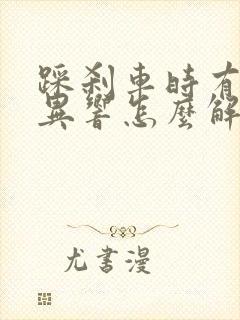 踩刹車時有
異響怎麼解
尤書漫